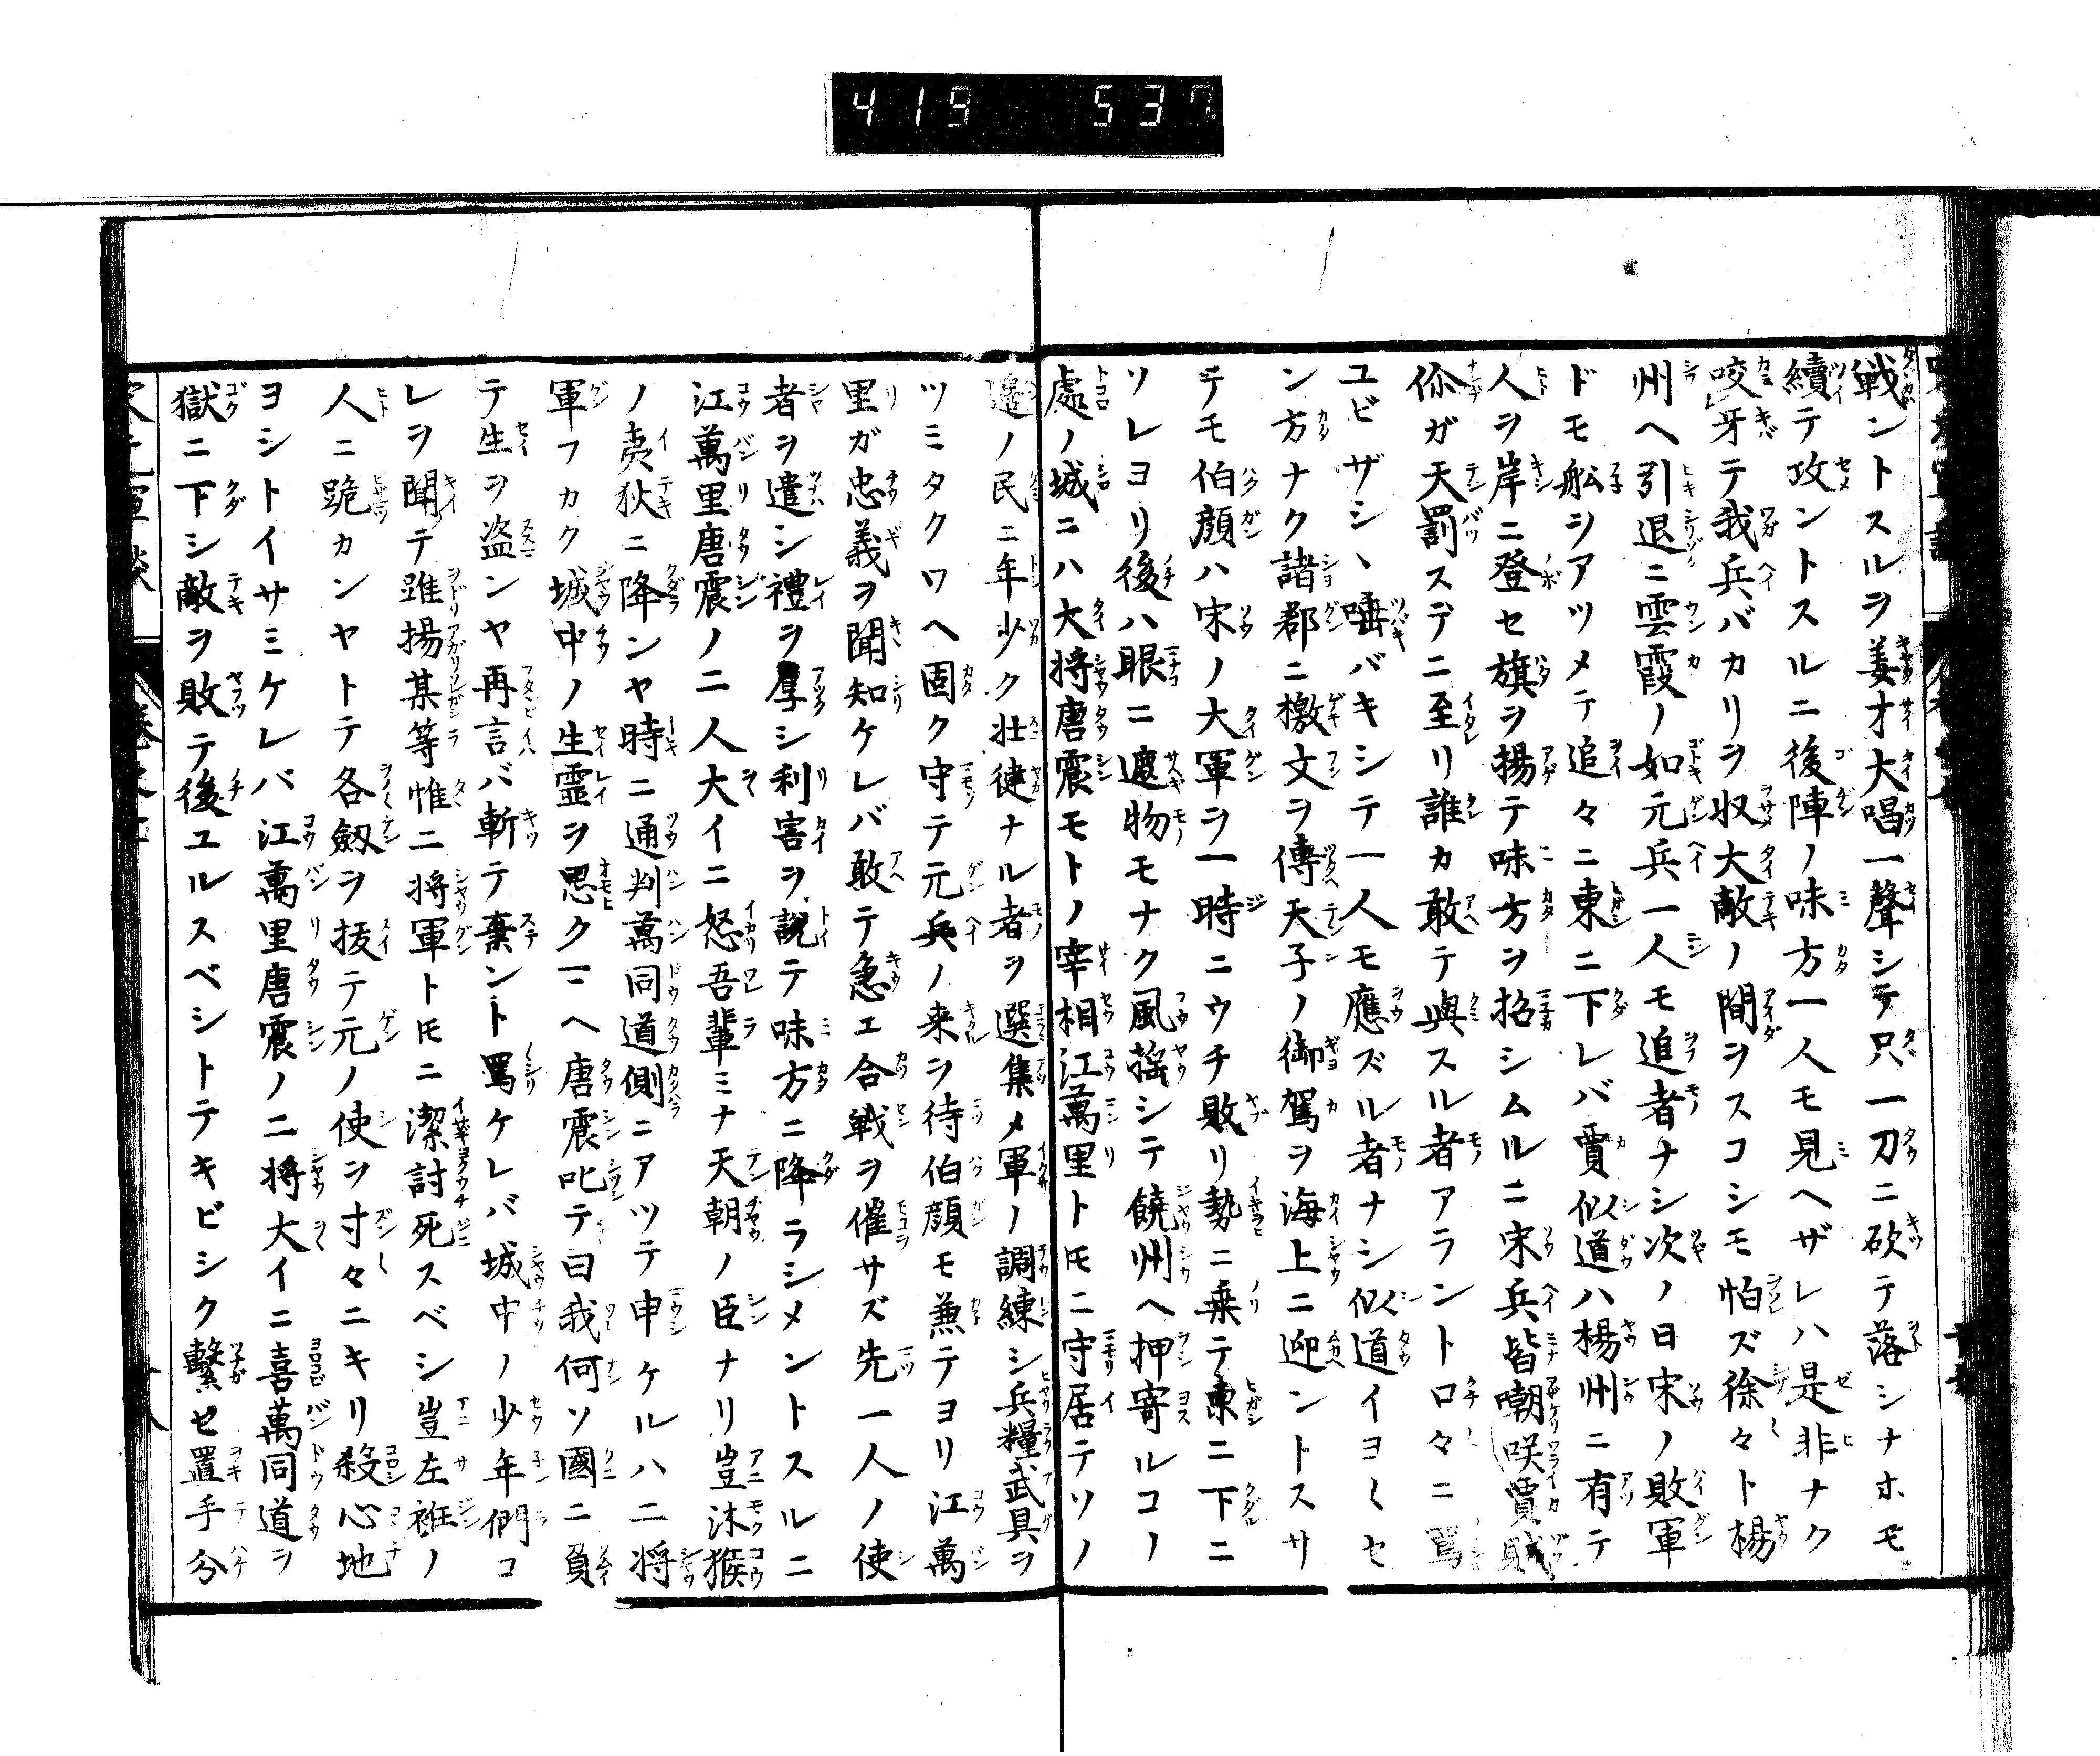 419 537
戦ントスルヲ姜才大唱一聲シテ只一刀ニ砍テ落シナホモ
續テ攻ントスルニ後陣ノ味方一人モ見ヘザレハ是非ナク
咬牙テ我兵バカリヲ収大敵ノ間ヲスコシモ怕ズ徐々ト楊
州ヘ引退ニ雲霞ノ如元兵一人モ追者ナシ次ノ日宋ノ敗軍
ドモ舩ヲアツメテ追々ニ東ニ下レバ賈似道ハ楊州ニ有テ
人ヲ岸ニ登セ旗ヲ揚テ味方ヲ招シムルニ宋兵皆嘲咲賈賊
伱ガ天罰ステニ至リ誰カ敢テ與スル者アラント口々ニ罵
ユビザシヽ唾バキシテ一人モ應ズル者ナシ似道イヨ〱セ
ン方ナク諸郡ニ檄文ヲ傳天子ノ御駕ヲ海上ニ迎ントスサ
テモ伯顔ハ宋ノ大軍ヲ一時ニウチ敗リ勢ニ乗テ東ニ下ニ
ソレヨリ後ハ眼ニ遮物モナク風搖シテ饒州ヘ押寄ルコノ
處ノ城ニハ大将唐震モトノ宰相江萬里トモニ守居テソノ
邉ノ民ニ年少ク壮健ナル者ヲ選集メ軍ノ調練シ兵糧武具ヲ
ツミタクワヘ固ク守テ元兵ノ来ヲ待伯顔モ兼テヨリ江萬
里ガ忠義ヲ聞知ケレバ敢テ急ニ合戦ヲ催サズ先一人ノ使
者ヲ遣シ禮ヲ厚シ利害ヲ説テ味方ニ降ラシメントスルニ
江萬里唐震ノ二人大イニ怒吾輩ミナ天朝ノ臣ナリ豈沐猴
ノ夷狄ニ降ンヤ時ニ通判萬同道側ニアツテ申ケルハ二将
軍フカク城中ノ生霊ヲ思クマヘ唐震叱テ曰我何ソ國ニ負
テ生ヲ盗ンヤ再言バ斬テ棄ント罵ケレバ城中ノ少年們コ
レヲ聞テ踴揚某等惟ニ将軍トモニ潔討死スベシ豈左袵ノ
人ニ跪カンヤトテ各劔ヲ抜テ元ノ使ヲ寸々ニキリ殺心地
ヨシトイサミケレバ江萬里唐震ノ二将大イニ喜萬同道ヲ
獄ニ下シ敵ヲ敗テ後ユルスベシトテキビシク繋セ置手分